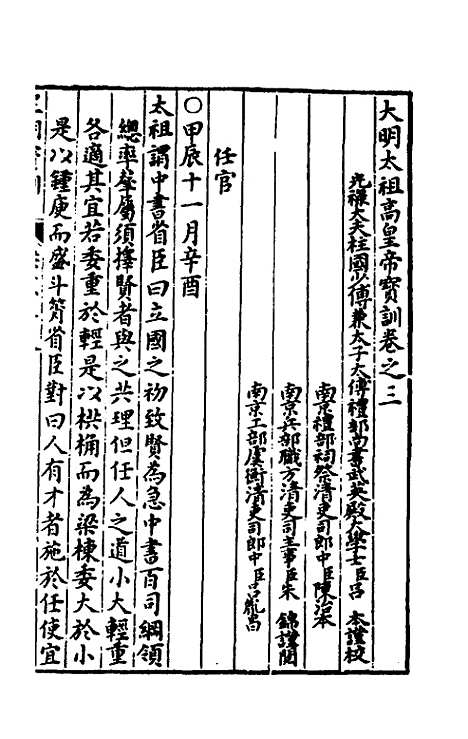 大明太祖高皇帝寶訓卷之三
光祿大夫柱國少傅兼太子太傅禮部尚書武英殿大學士臣呂 本謹校
南京禮部祠祭清吏司郎中臣陳治本
南京兵部職方清吏司主事臣朱 錦謹閱
南京工部虞衡清吏司郎中臣呂胤昌
任官
○甲辰十一月辛酉
太祖謂中書省臣曰立國之初致賢為急中書百司綱領
總率羣屬須擇賢者與之共理但任人之道小大輕重
各適其宜若委重於輕是以栱桷而為梁棟委大於小
是以鍾庾而盛斗筲省臣對曰人有才者施於任使宜